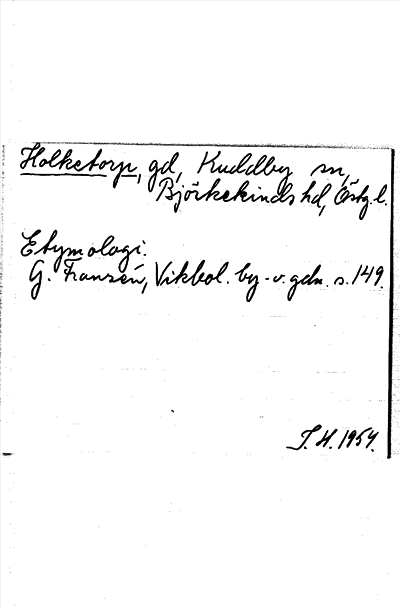 Holketorp, gd, Kuddby sn,
Björkekinds hd, Östg.l.
Etymologi.
G. Franzén, Vikbol. by- o. gdn. s. 149.
T. H. 1954.